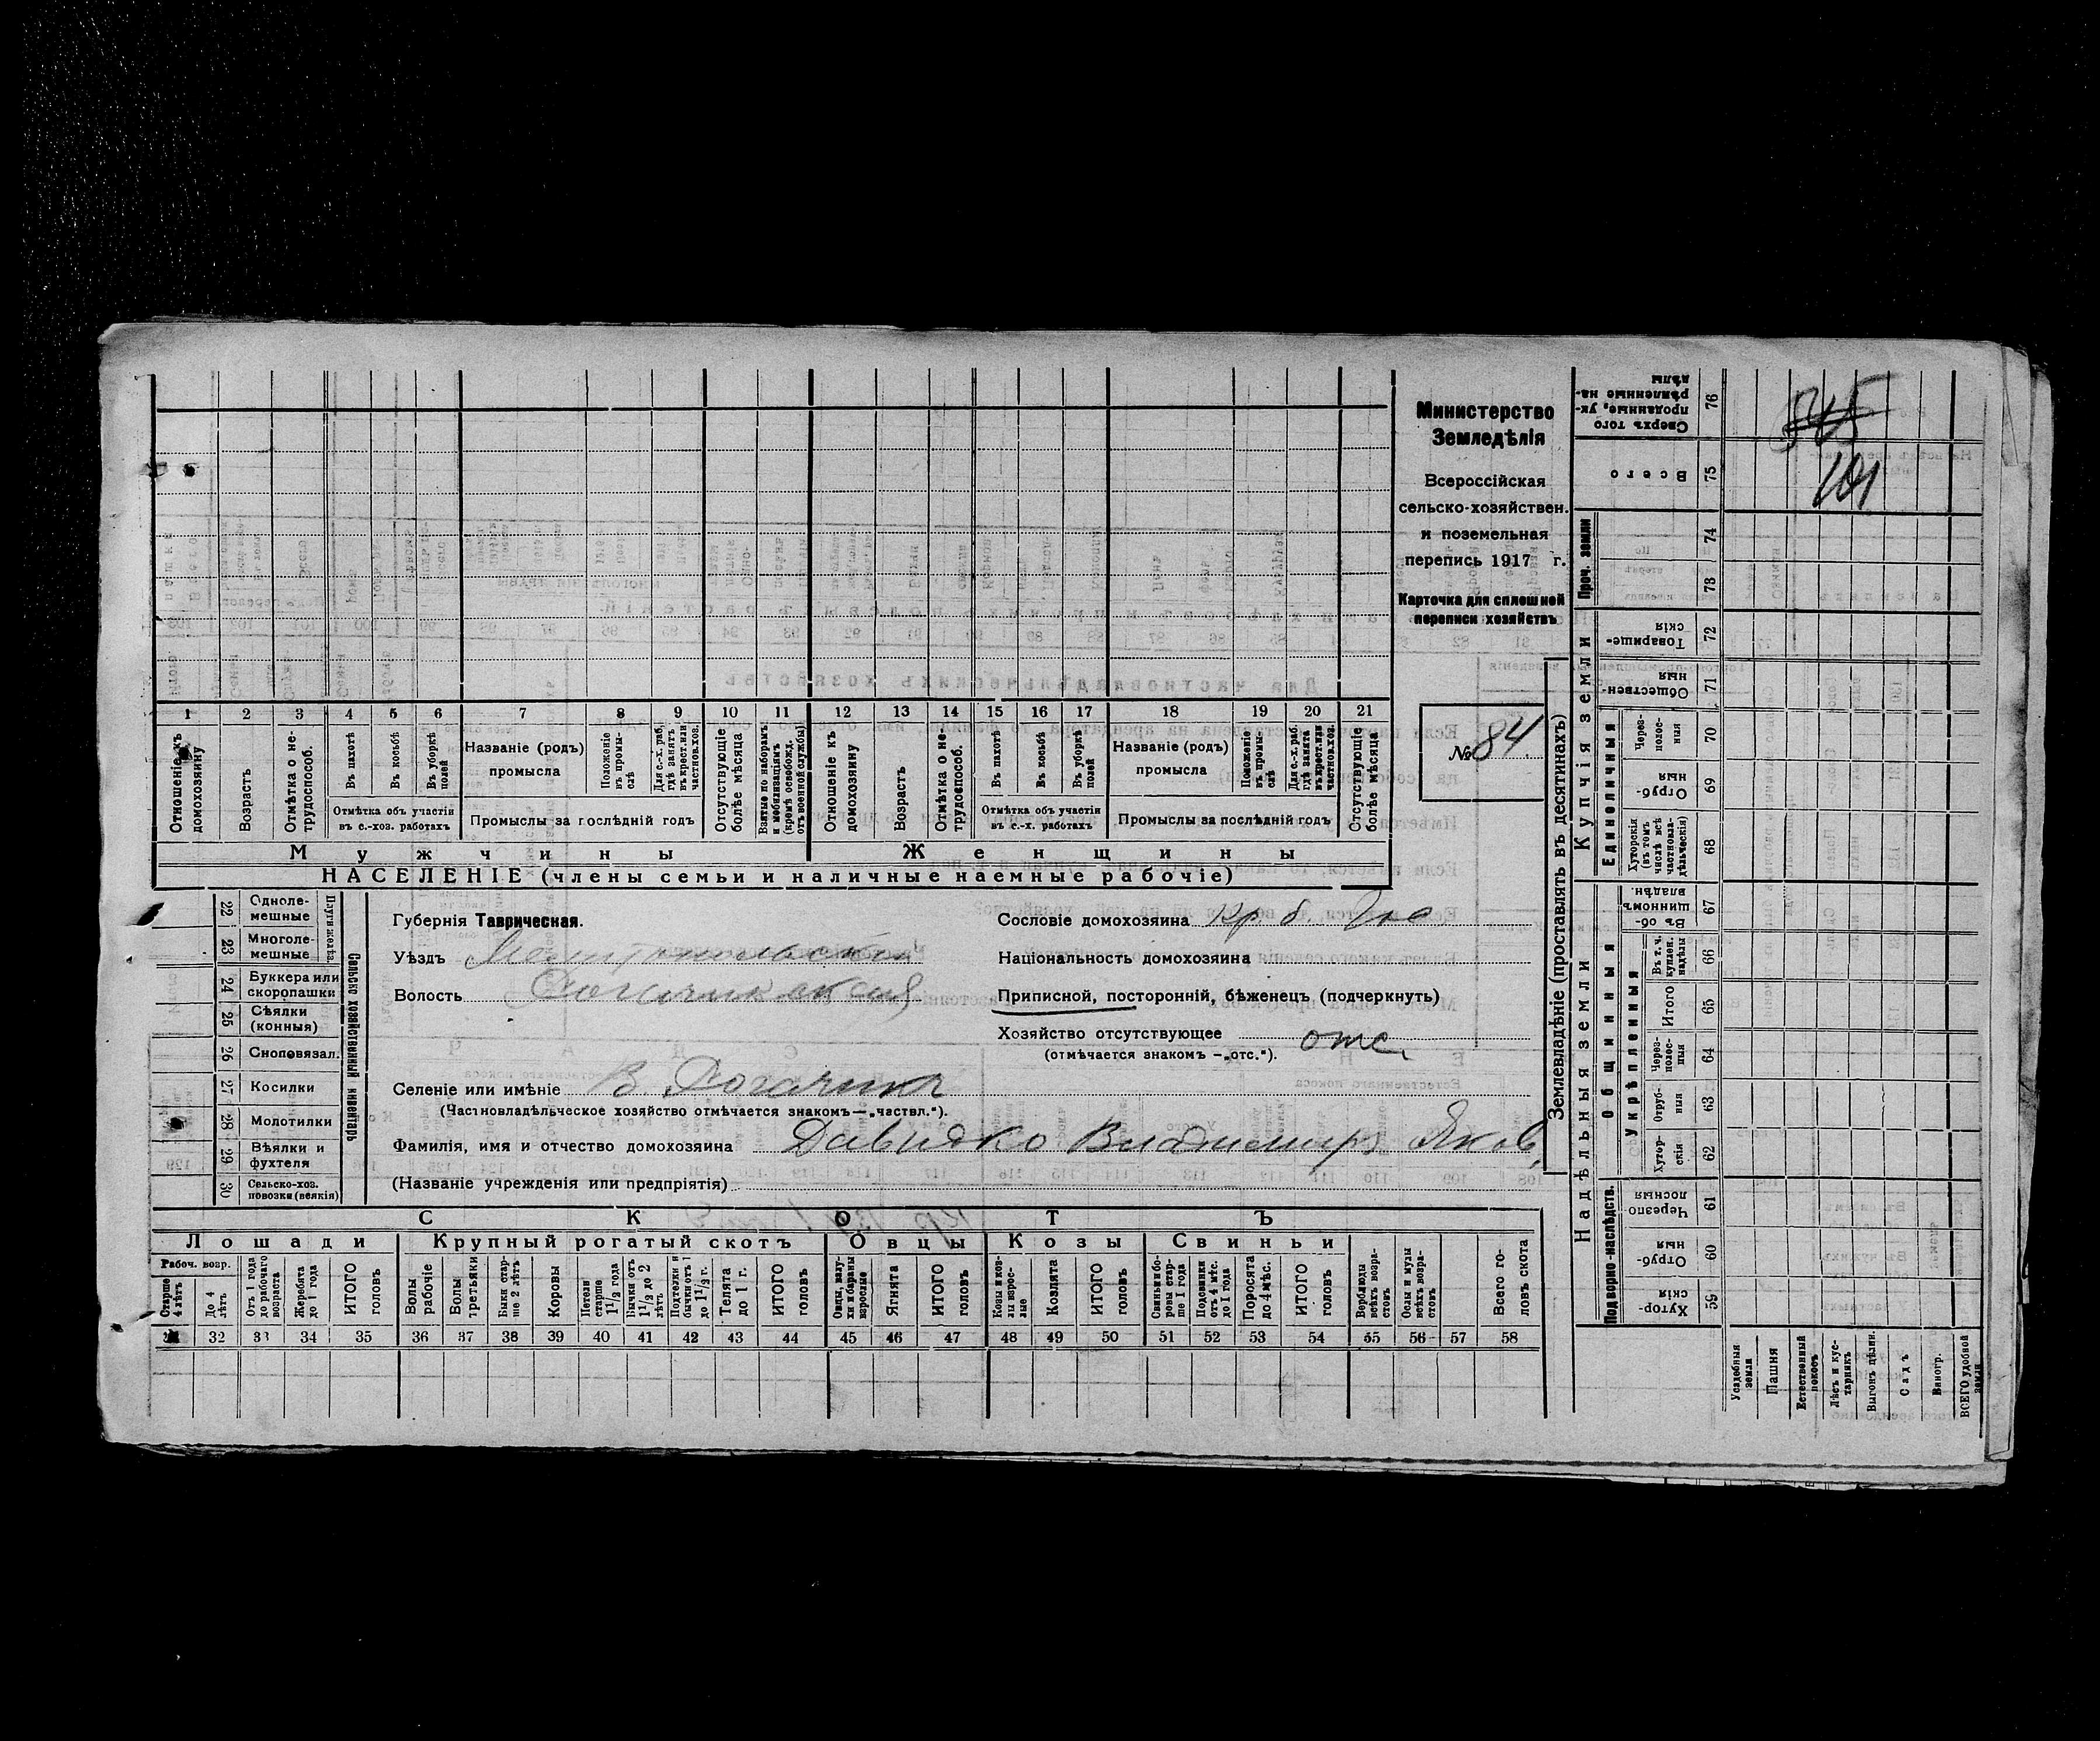 Министерство
Земледѣлія
Всероссійская
сельско-хозяйствен.
и поземельная
перепись 1917 г.
Карточка для сплошной
переписи хозяйствъ
№ 84
545
101
1 2 3 4 5 6 7 8 9 10 11 12 13 14 15 16 17 18 19 20 21
Отношеніе къ домохозяину
Возрастъ
Отмѣтка о не-трудоспособ.
Въ пахотѣ
Въ косьбѣ
Въ уборкѣ полей
Отмѣтка объ участіи въ с.-хоз. работахъ
Названіе (родъ) промысла
Положеніе въ промы-слѣ
Для с.-х. раб. гдѣ занятъ въ крест. или частнов. хоз.
Промыслы за послѣдній годъ
Отсутствующіе болѣе мѣсяца
Взятые по наборамъ и мобилизаціямъ (кромѣ освобожд. отъ военной службы)
Отношеніе къ домохозяину
Возрастъ
Отмѣтка о не-трудоспособ.
Въ пахотѣ
Въ косьбѣ
Въ уборкѣ полей
Отмѣтка объ участіи въ с.-х. работахъ
Названіе (родъ) промысла
Положеніе въ промы-слѣ
Для с.-х. раб. гдѣ занята въ крест. или частнов. хоз.
Промыслы за послѣдній годъ
Отсутствующіе болѣе мѣсяца
Мужчины Женщины
НАСЕЛЕНІЕ (члены семьи и наличные наемные рабочіе)
Сельско хозяйственный инвентарь
Плуги желѣз.
22 Одноле-мешные
23 Многоле-мешные
24 Буккера или скоропашки
25 Сѣялки (конныя)
26 Сноповязал.
27 Косилки
28 Молотилки
29 Вѣялки и фухтеля
30 Сельско-хоз. повозки (всякія)
Губернія Таврическая.
Уѣздъ Мелитопольскій
Волость Рогачикская
Сословіе домохозяина Кр. б.
Національность домохозяина
Приписной, посторонній, бѣженецъ (подчеркнуть)
Хозяйство отсутствующее отс.
(отмѣчается знакомъ —„отс.“).
Селеніе или имѣніе В. Рогачикъ
(Частновладѣльческое хозяйство отмѣчается знакомъ—„частвл.“).
Фамилія, имя и отчество домохозяина Давидко Владимиръ Яков.
(Названіе учрежденія или предпріятія)
СКОТЪ
Лошади Крупный рогатый скотъ Овцы Козы Свиньи
Рабоч. возр.
Старше 4 лѣтъ
До 4 лѣтъ
Отъ 1 года до рабочаго возраста
Жеребята до 1 года
ИТОГО головъ
Волы рабочіе
Волы третьяки
Быки стар-ше 2 лѣтъ
Коровы
Нетели старше 1½ года
Бычки отъ 1½ до 2 лѣтъ
Подтелки и бычки отъ 1 до 1½ г.
Телята до 1 г.
ИТОГО головъ
Овцы, валу-хи и бараны взрослые
Ягнята
ИТОГО головъ
Козы и коз-лы взрос-лые
Козлята
ИТОГО головъ
Свиньи и бо-ровы стар-ше 1 года
Подсвинки отъ 4 мѣс. до 1 года
Поросята до 4 мѣс.
ИТОГО головъ
Верблюды всѣхъ возра-стовъ
Ослы и мулы всѣхъ возра-стовъ
Всего го-ловъ скота
32 33 34 35 36 37 38 39 40 41 42 43 44 45 46 47 48 49 50 51 52 53 54 55 56 57 58
Землевладѣніе (проставлять въ десятинахъ)
Купчія земли
Надѣльныя земли
Сверхъ того проданные, ук-рѣпленные на-дѣлы 76
Всего 75
Проч. земли
74
73
Товарище-скія 72
Обществен-ныя 71
Единоличныя
Через-полос-ныя 70
Отруб-ныя 69
Хуторскія (въ томъ числѣ всѣ частновла-дѣльческія) 68
Общинныя
Въ об-щинномъ владѣн. 67
Укрѣпленныя
Въ т. ч. куплен. надѣлы 66
Итого 65
Через-полос-ныя 64
Отруб-ныя 63
Хутор-скія 62
Подворно-наслѣдств.
Черезпо-лосныя 61
Отруб-ныя 60
Хутор-скія 59
Усадебныя земли
Пашня
Естественный покосъ
Лѣсъ и кус-тарникъ
Выгонъ цѣлин.
Садъ
Виногр.
ВСЕГО удобной земли